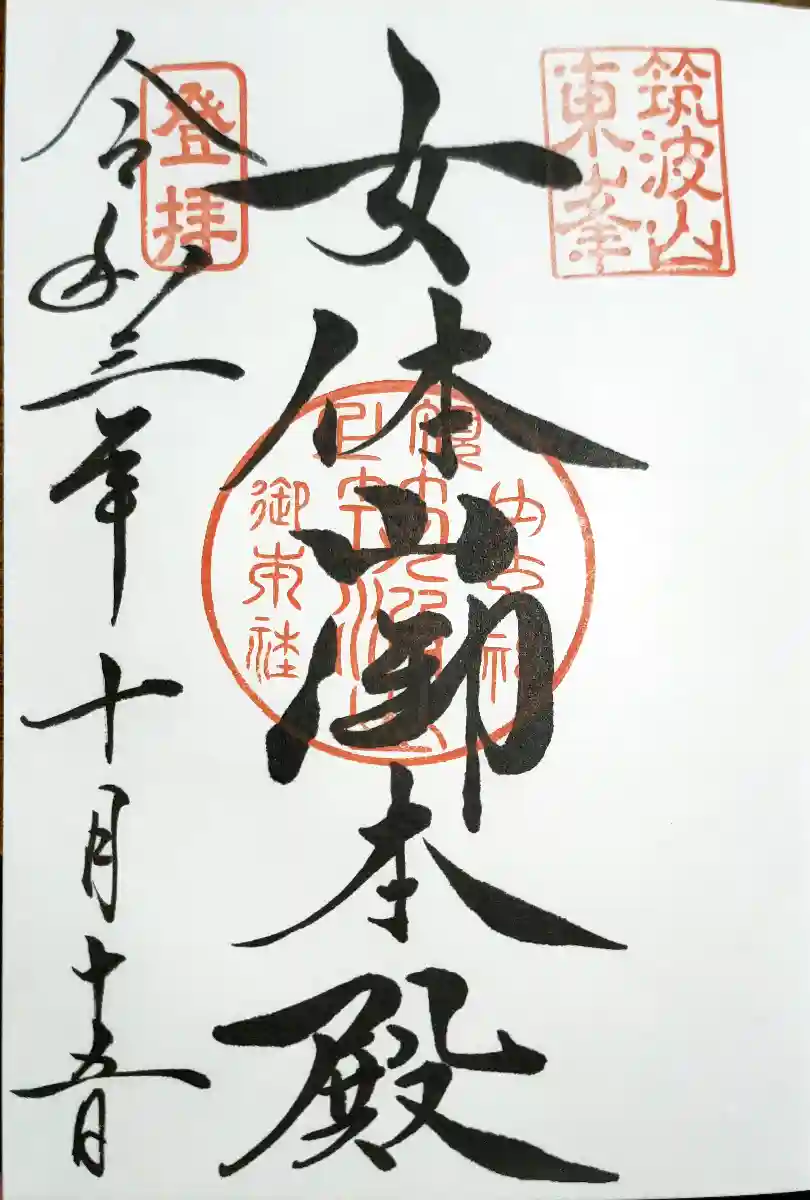 筑波山
東峯
女体山御本殿
御本社
登拝
令和三年十月十五日